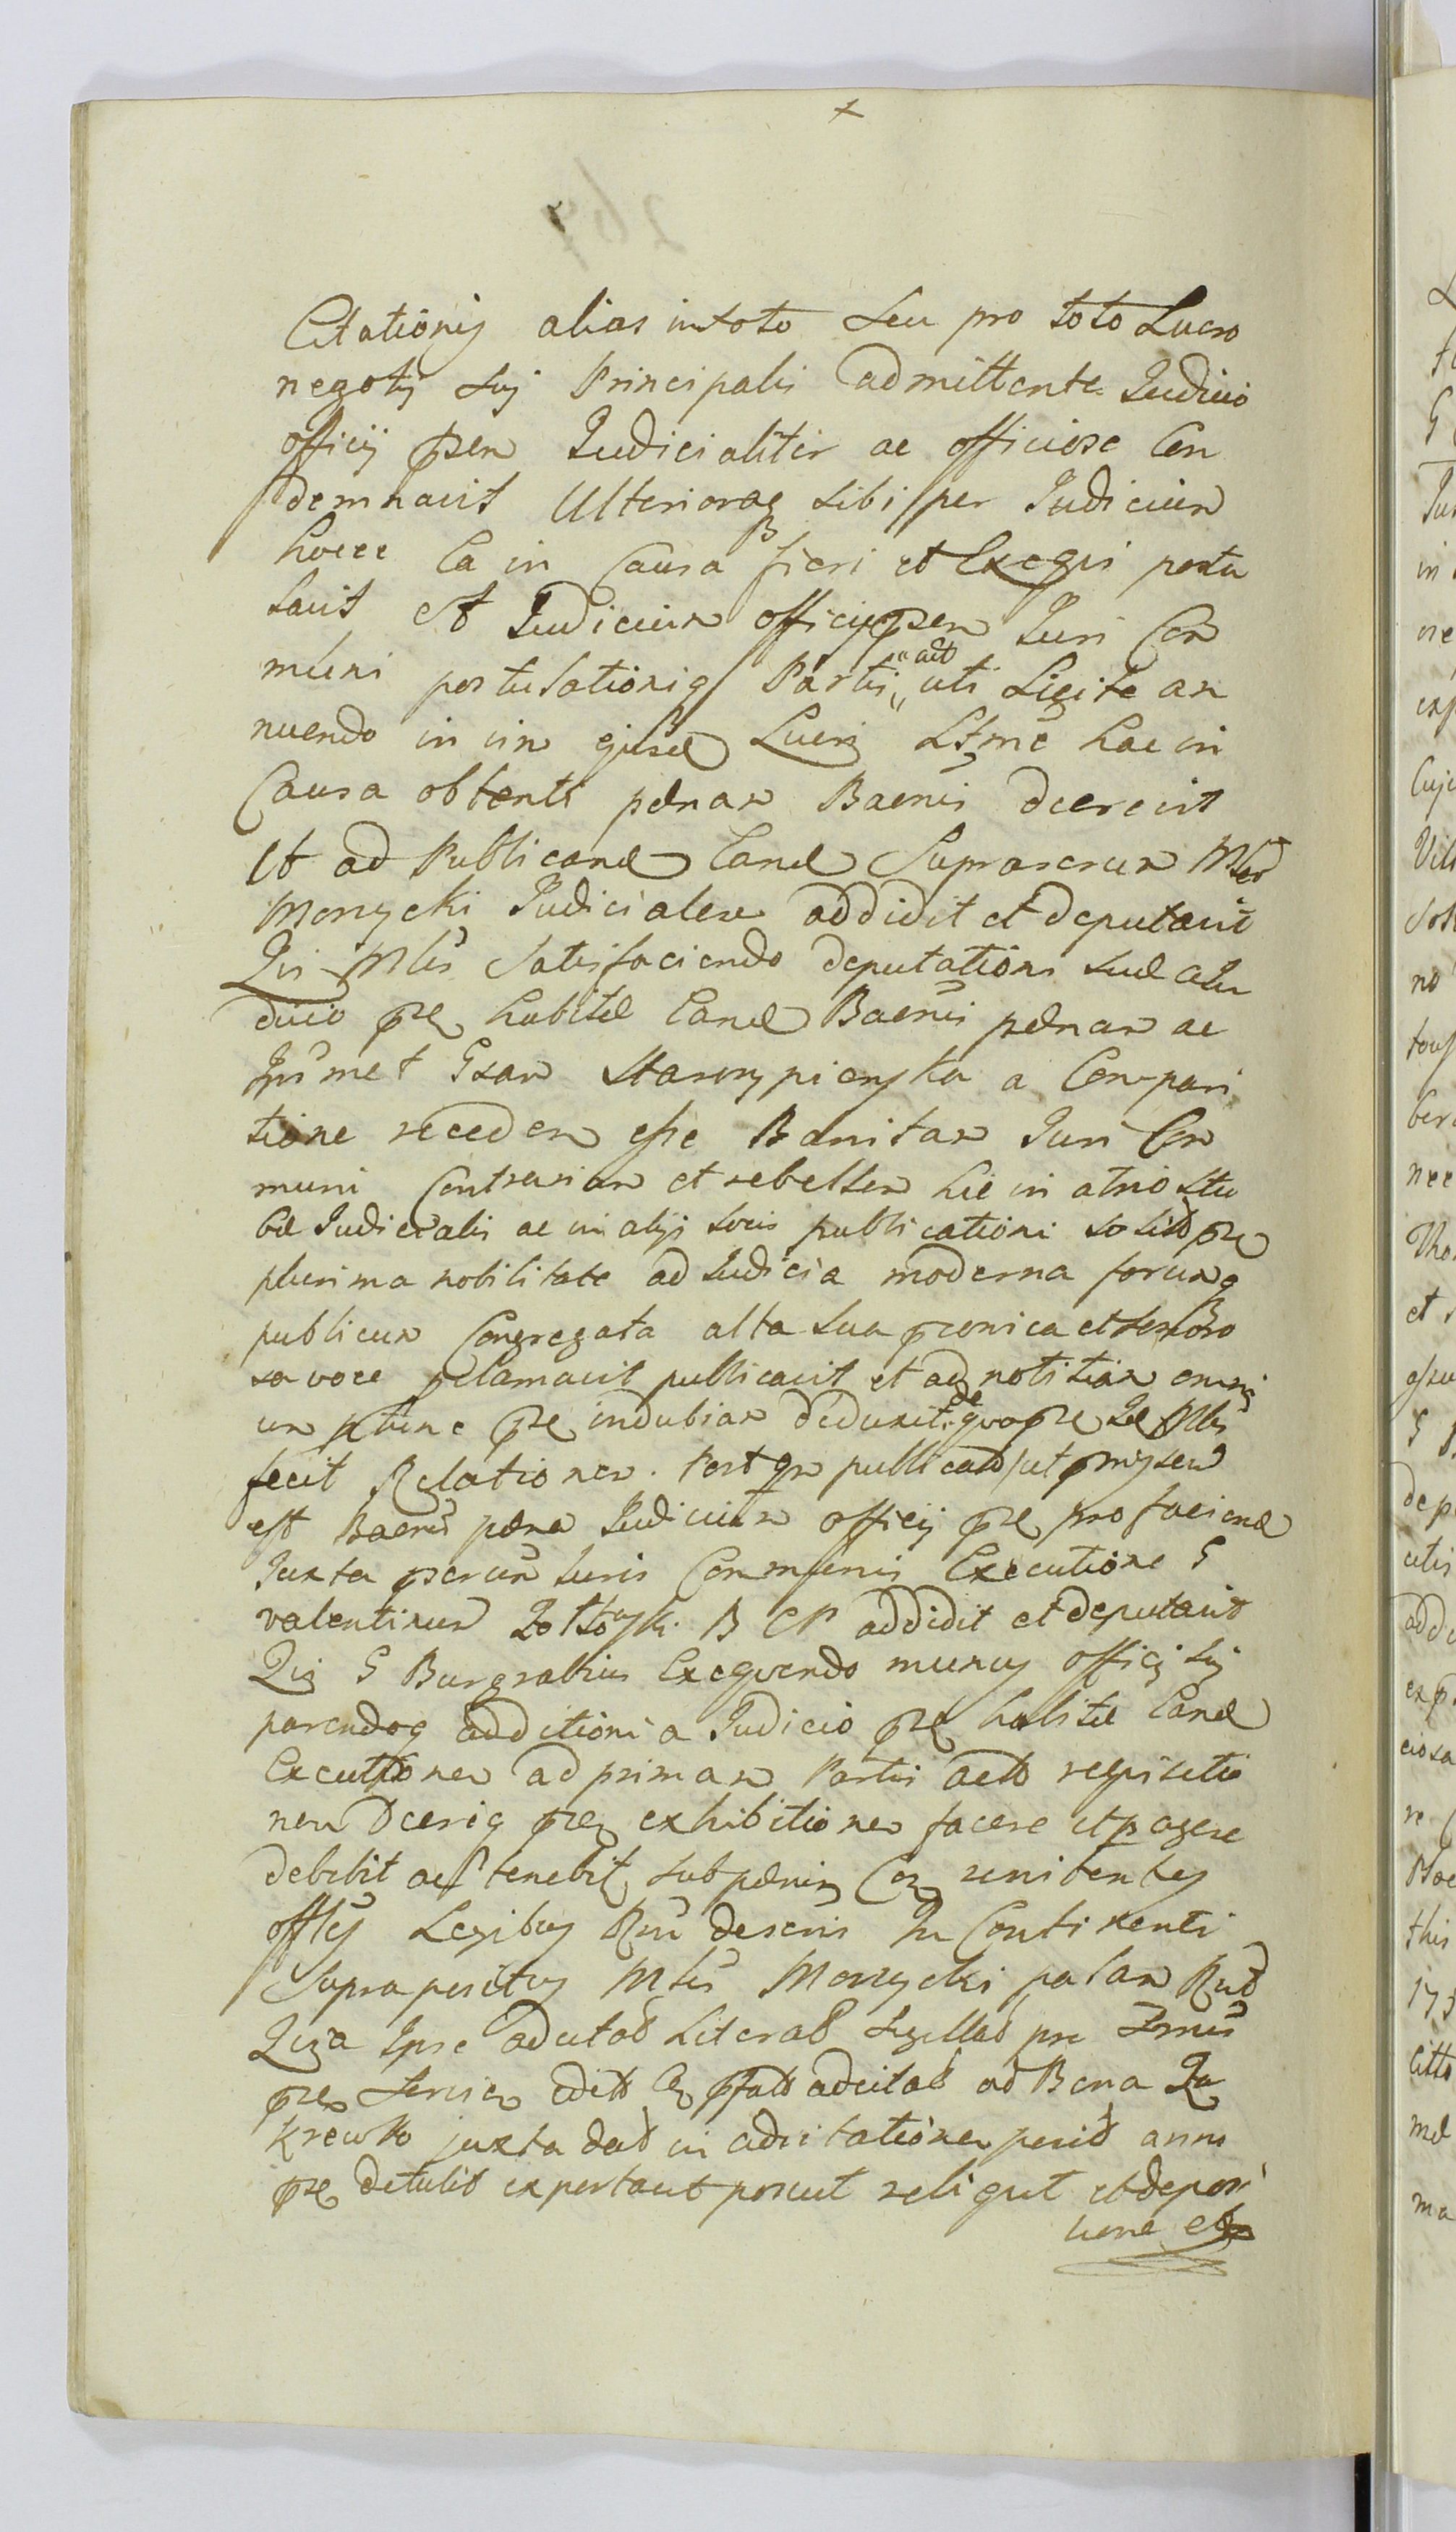 Citationis alias in toto seu pro toto Lucro
negotij suj Principalis admittente Judicio
officij psen Judicialiter ac officiose Con
demnavit Ulterioraq sibi per Judicium
hocce Ea in Causa fieri et Exeqvi postu
lavit et Judicium officij psen Juri Com
muni postulationiq Partis act uti Licite an
nuendo in vim ejusd Lucri Ltme hac in
Causa obtenti pænam Baenis decrevit
Et ad Publicand Eand Suprascrum Mlem
Monycki Judicialem addidit et deputavit
Qui Mlis Satisfaciendo deputationi suæ a Ju
dicio pse habitæ Eand Baenis pænam ac
Ipsmet Gsam Starorypienska a Compari
tione recedem esse Banitam Juri Com
muni Contrariam et rebellem hic in atrio stu
bæ Judicialis ac in alijs locis publicationi solitis pse
plurima nobilitate ad Judicia moderna forumq
publicum Congregata alta sua præconica et sono
sa voce plamavit publicavit et ad notitiam omni
um ptunc pse indubiam deduxit de qvo pse Id Mlis
fecit Relationem. Post qm publicatã ut pmissum
est Baenis pæna Judicium officij pse pro faciend
Juxta pscrum Juris Communis Executione G
valentinum B C P addidit et deputavit
Qui G Burgrabius Exeqvendo munus officij suj
parendoq additioni a Judicio pse habitæ Eand
Executionem ad primam Partis actæ reqvisitio
nem Dcreiq pse exhibitionem facere et pagere
debebit ac tenebit sub pænis Con renitentes
offles Legibus Rni descris In Continenti
Suprapositus Mlis Monycki palam Rwit
Quia Ipse adcitas Literas Sigillas pn
pse adcitas ad Bona Za
krewko juxta dat in adcitatione posit anno
pse detulit exportavit posuit reliqvit et depos
uone etc